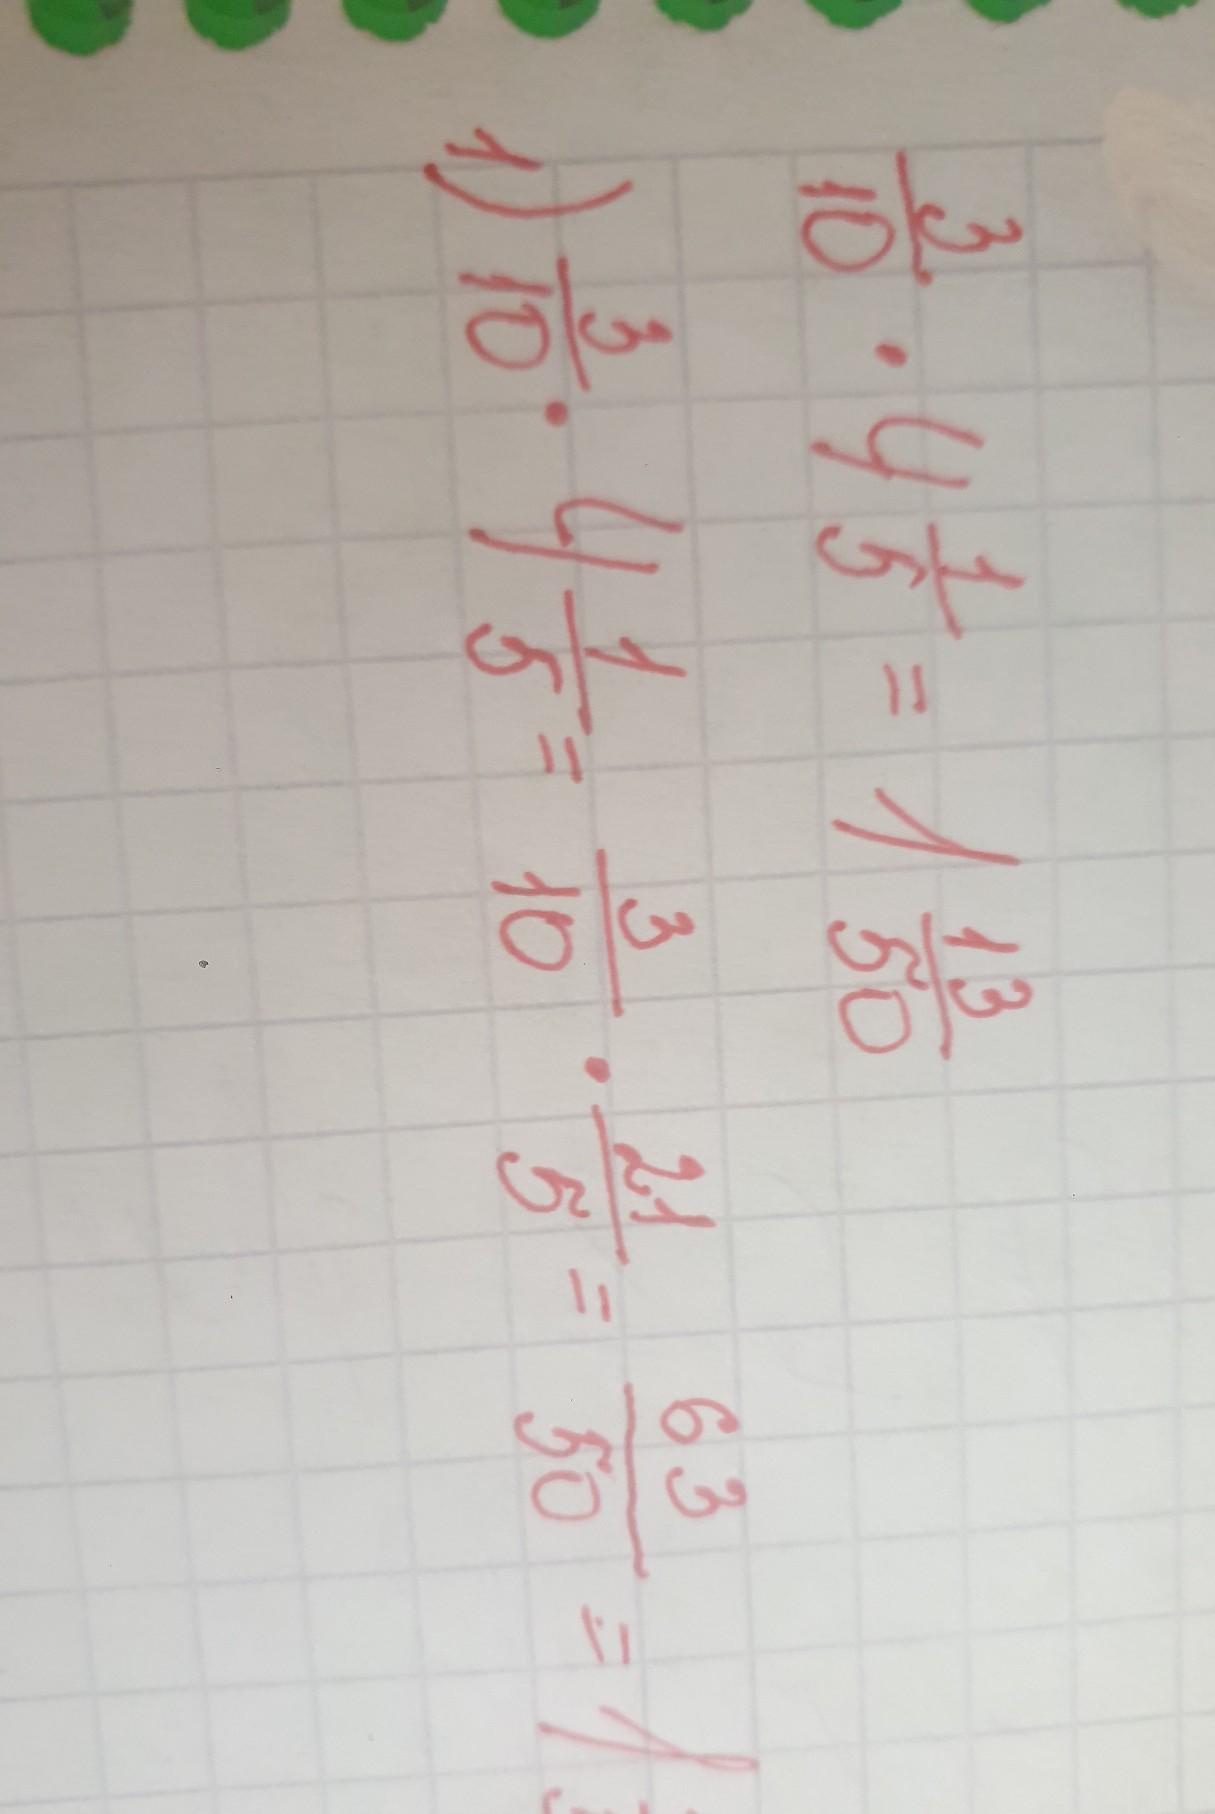 3/10 · 4 1/5 = 1 13/50
1) 3/10 · 4 1/5 = 3/10 · 21/5 = 63/50 = 1